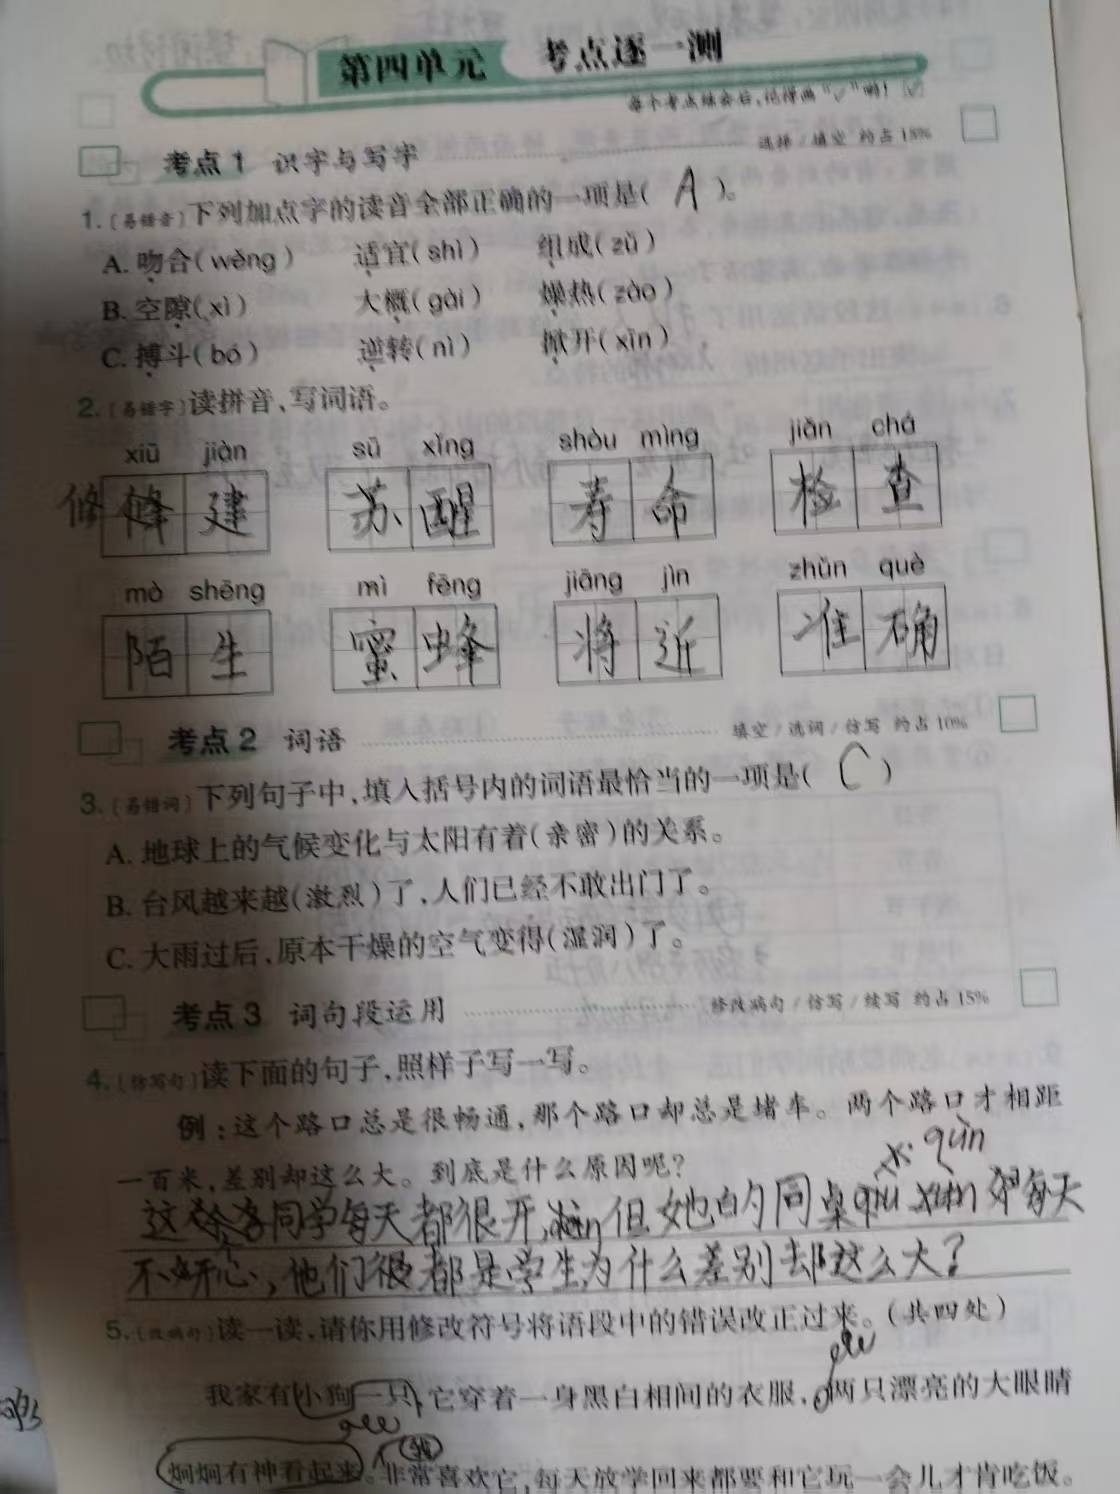 第四单元 考点逐一测
每个考点练会后,记得画“✓”哟! ✓
考点1 识字与写字 选择/填空 约占15%
1.(易错音)下列加点字的读音全部正确的一项是( A )。
A. 吻合(wěng) 适宜(shì) 组成(zǔ)
B. 空隙(xì) 大概(gài) 燥热(zào)
C. 搏斗(bó) 逆转(nì) 掀开(xīn)
2.(易错字)读拼音、写词语。
xiū jiàn sū xǐng shòu mìng jiǎn chá
修 建 苏醒 寿命 检查
mò shēng mì fēng jiāng jìn zhǔn què
陌生 蜜蜂 将近 准确
考点2 词语 填空/选词/仿写 约占10%
3.(易错词)下列句子中,填入括号内的词语最恰当的一项是( C )
A. 地球上的气候变化与太阳有着(亲密)的关系。
B. 台风越来越(激烈)了,人们已经不敢出门了。
C. 大雨过后,原本干燥的空气变得(湿润)了。
考点3 词句段运用 修改病句/仿写/续写 约占15%
4.(仿写句)读下面的句子,照样子写一写。
例:这个路口总是很畅通,那个路口却总是堵车。两个路口才相距
一百米,差别却这么大。到底是什么原因呢?
qùn
同学每天都很开 但她的同桌 每天
不开心,他们 都是学生为什么差别却这么大?
5.(改病句)读一读,请你用修改符号将语段中的错误改正过来。(共四处)
我家有小狗一只,它穿着一身黑白相间的衣服,两只漂亮的大眼睛
炯炯有神看起来。非常喜欢它,每天放学回来都要和它玩一会儿才肯吃饭。